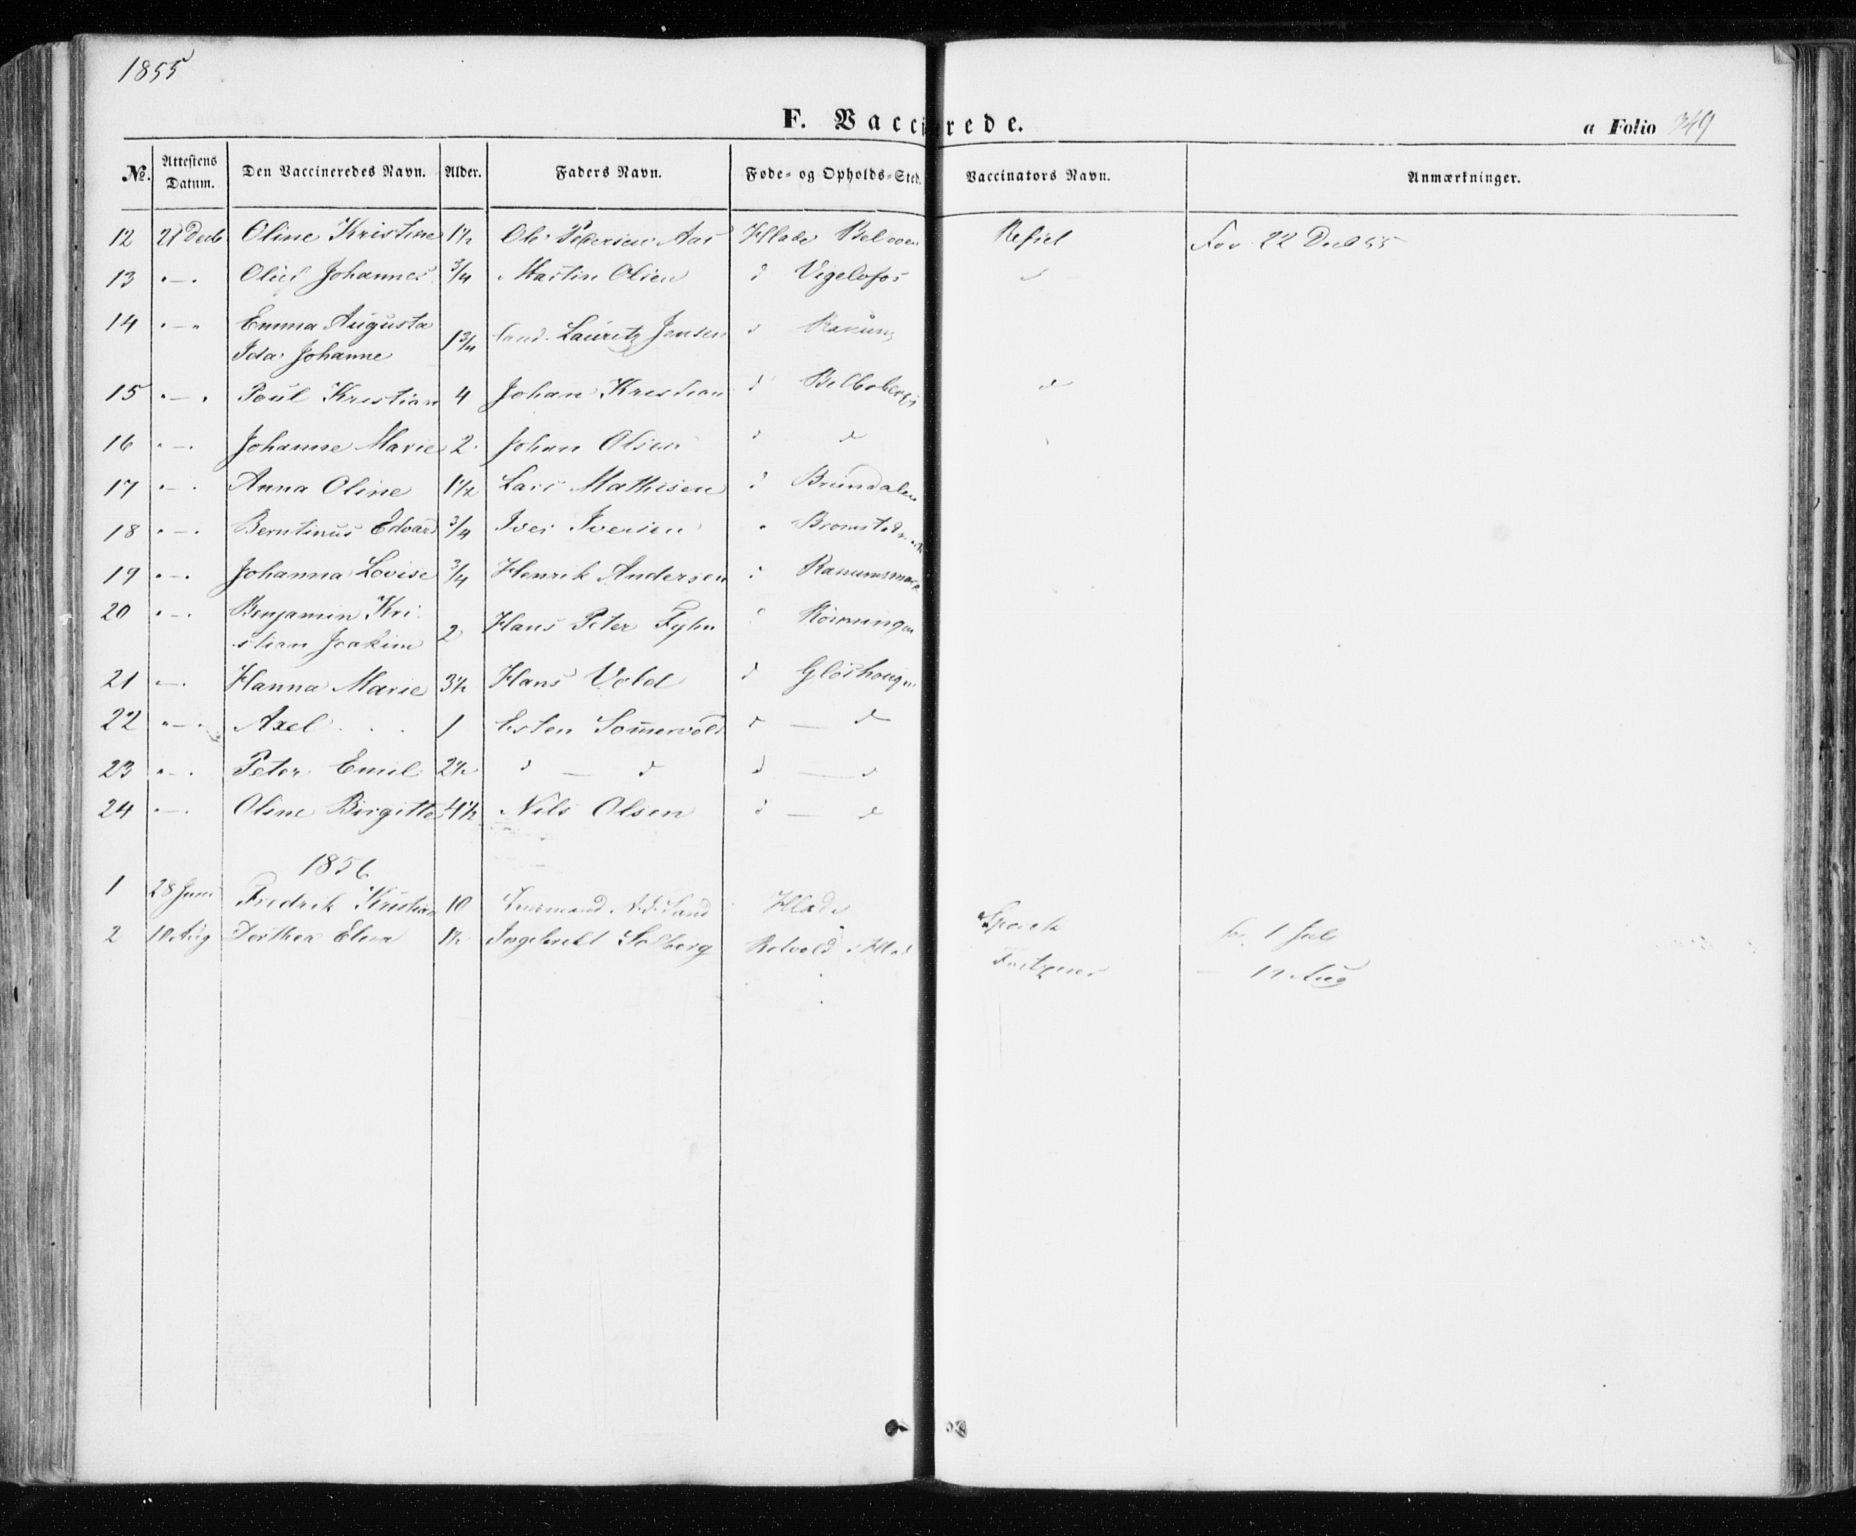 1855
F. Vaccinerede.
a Folio 349
№. Attestens Datum. Den Vaccineredes Navn. Alder. Faders Navn. Føde- og Opholds-Sted. Vaccinators Navn. Anmærkninger.
12 21 Decb Oline Kristine 1½ Ole Petersen Aas Hlade For 22 Dec 55
13 " — " Oluf Johannes 3/4 Martin Olsen d Vigelofos d
14 " — " Emma Augusta
Ida Johanne 1 3/4 Lauritz Jensen d
15 " — " Poul Kristian 4 Johan Kristian d d
16 " — " Johanne Marie 2 Johan Olsen d d
17 " — " Anna Oline 1½ Lars Mathisen d Brundalen
18 " — " Berntinus Edvard 3/4 Iver Iversen "
19 " — " Johanna Lovise 3/4 Henrik Andersen
20 " — " Benjamin Kri-
stian Joakim 2 Hans Peter Fyhn
21 — " Hanna Marie 3½ Hans Vold d
22 " — " Axel 1 Esten Somervold d — d
23 " — " Peter Emil 2½ d — d d — d
24 — " Oline Birgitte 4½ Nils Olsen d — d
1856
1 28 Juni Fredrik Kristian 10 Hlade 1 Juli
2 10 Aug Dorthea Elena 1½ Ingebrekt Solberg Rotvold i Hlad — 19 Aug